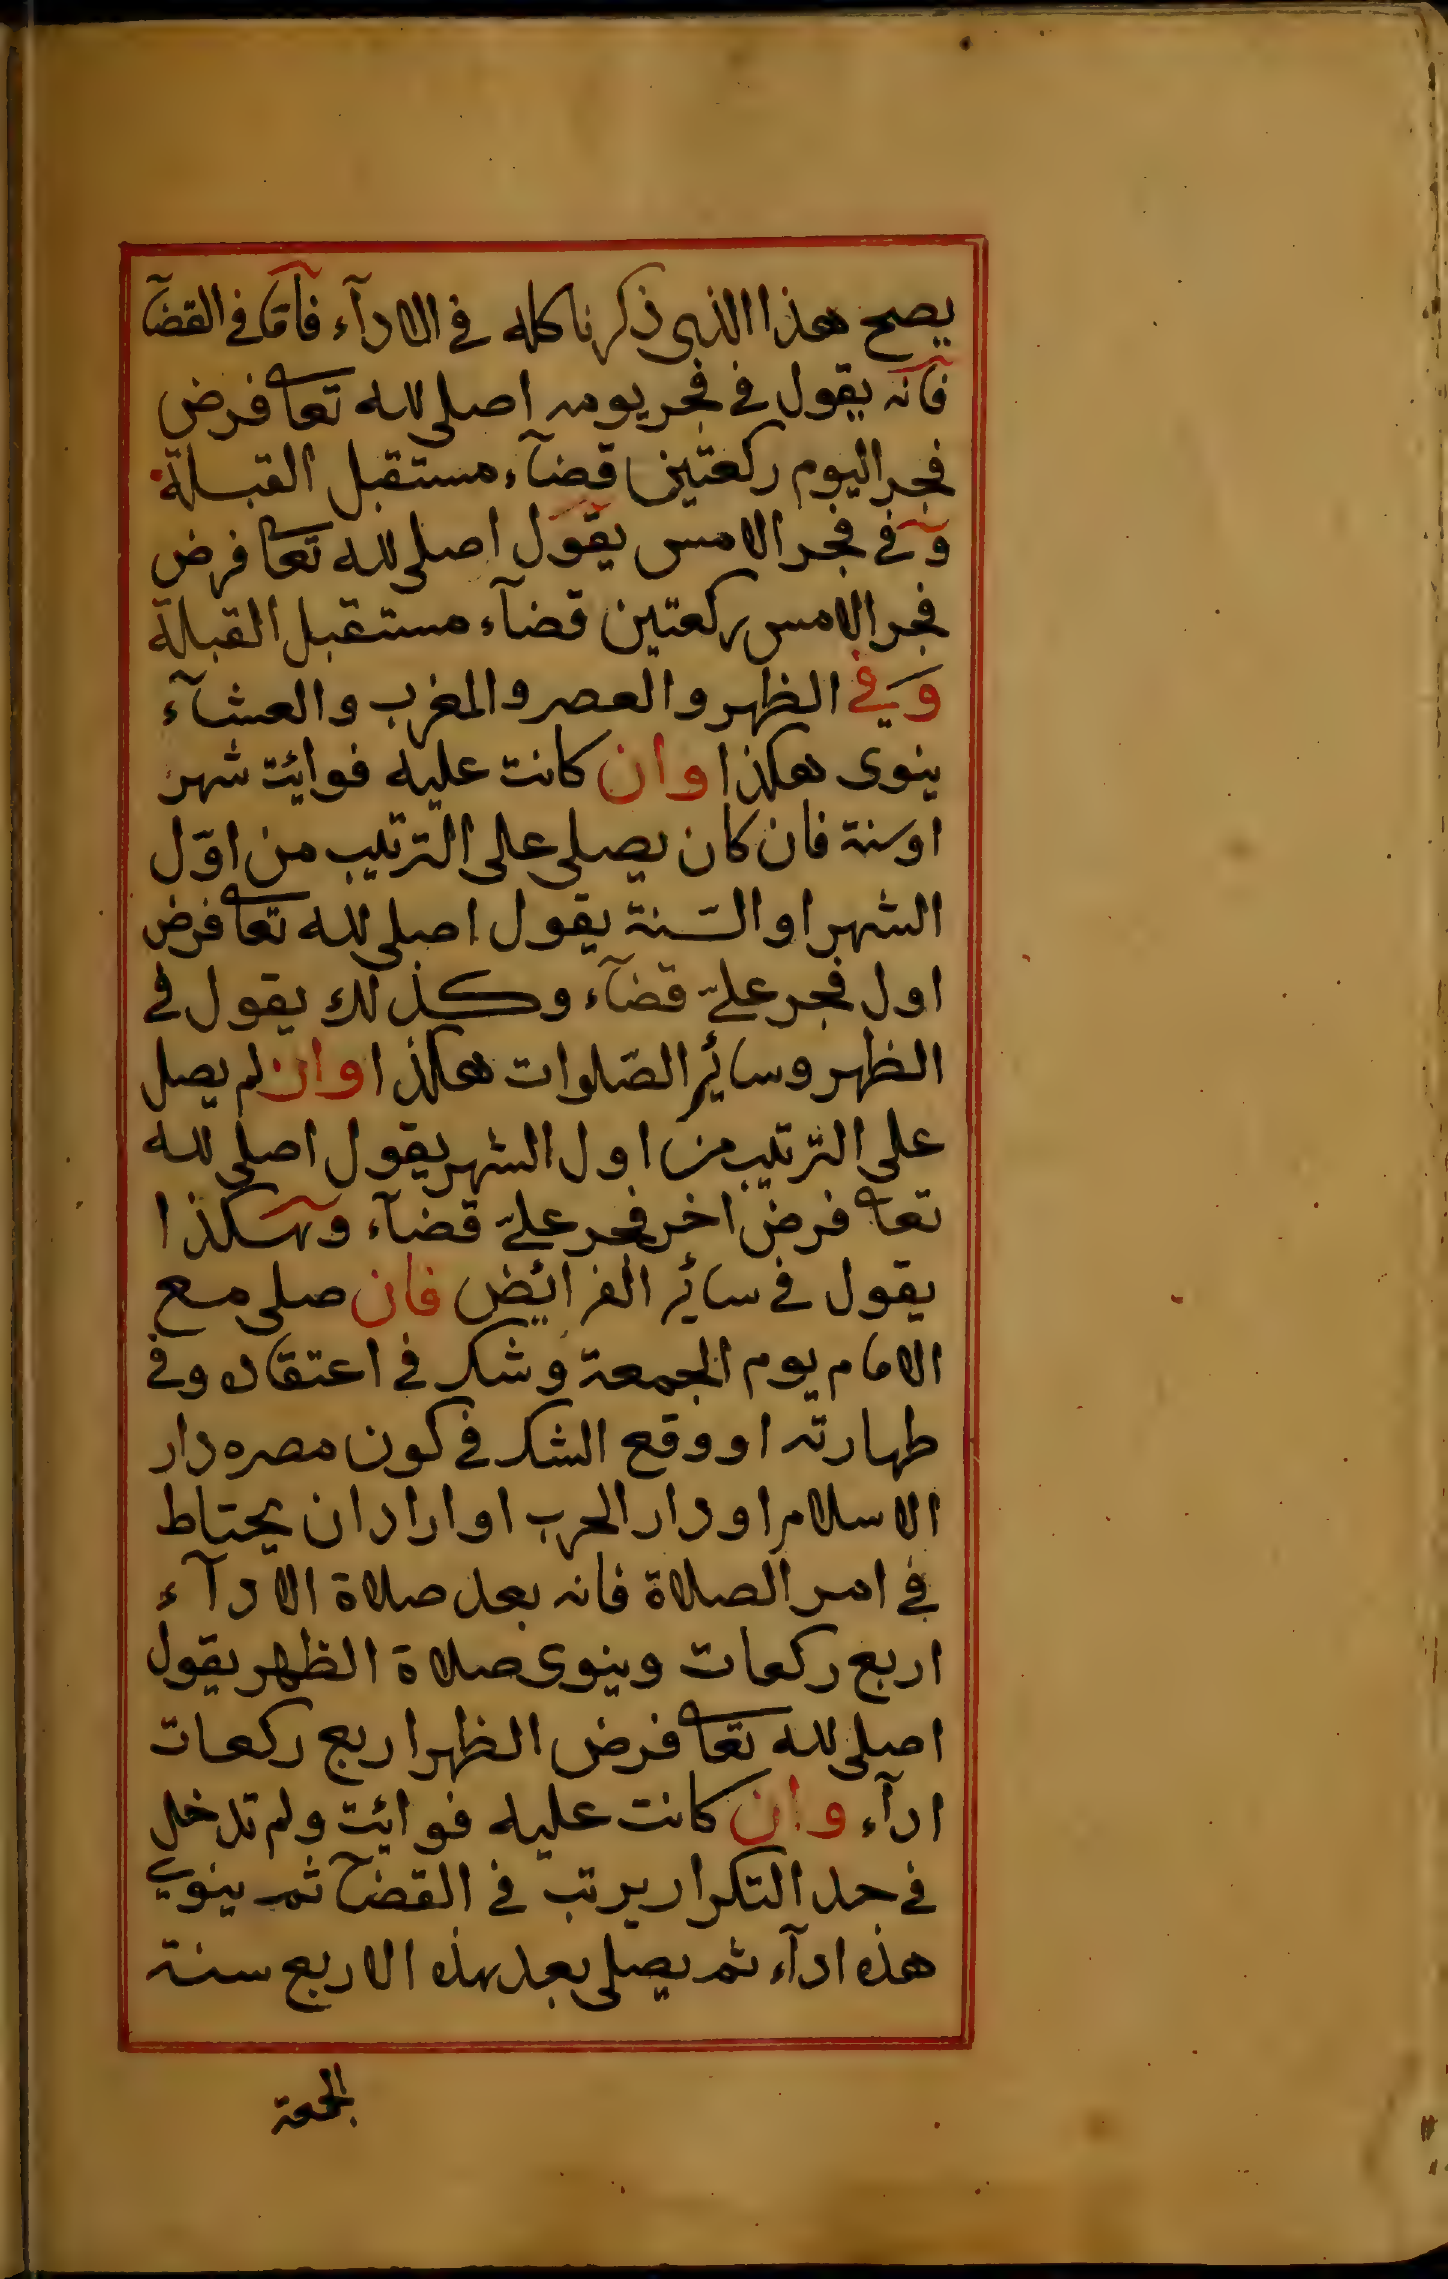 يصح هذا الذى ذكرناكله فى الادآء فآمّا فى القضآ
فآنه يقول فى فجر يومه اصلى لله تعا فرض
فجر اليوم ركعتين قضآء مستقبل القبلة
وفى فجر الامس يقول اصلى لله تعا فرض
فجر الامس ركعتين قضآء مستقبل القبلة
وَفى الظهر والعصر والمغرب والعشآء
ينوى هكذا وان كانت عليه فوائت شهر
اوسنة فان كان يصلى على الترتيب من اوّل
الشهر او السّنة يقول اصلى لله تعا فرض
اول فجر علىّ قضآء وكذلك يقول فى
الظهر وسائر الصّلوات هكذا وان لم يصل
على الترتيب من اول الشهر يقول اصلى لله
تعا فرض اخر فجر علىّ قضآء وهكذا
يقول فى سائر الفرائض فان صلى مع
الامام يوم الجمعة وشك فى اعتقاده وفى
طهارته او وقع الشك فى كون مصره دار
الاسلام او دار الحرب او اراد ان يحتاط
فى امر الصلاة فانه بعد صلاة الادآء
اربع ركعات وينوى صلاة الظهر يقول
اصلى لله تعا فرض الظهر اربع ركعات
ادآء وان كانت عليه فوائت ولم تدخل
فى حد التكرار يرتب فى القضآ ثم ينوي
هذه ادآء ثم يصلى بعد هذه الاربع سنة
الجمعة